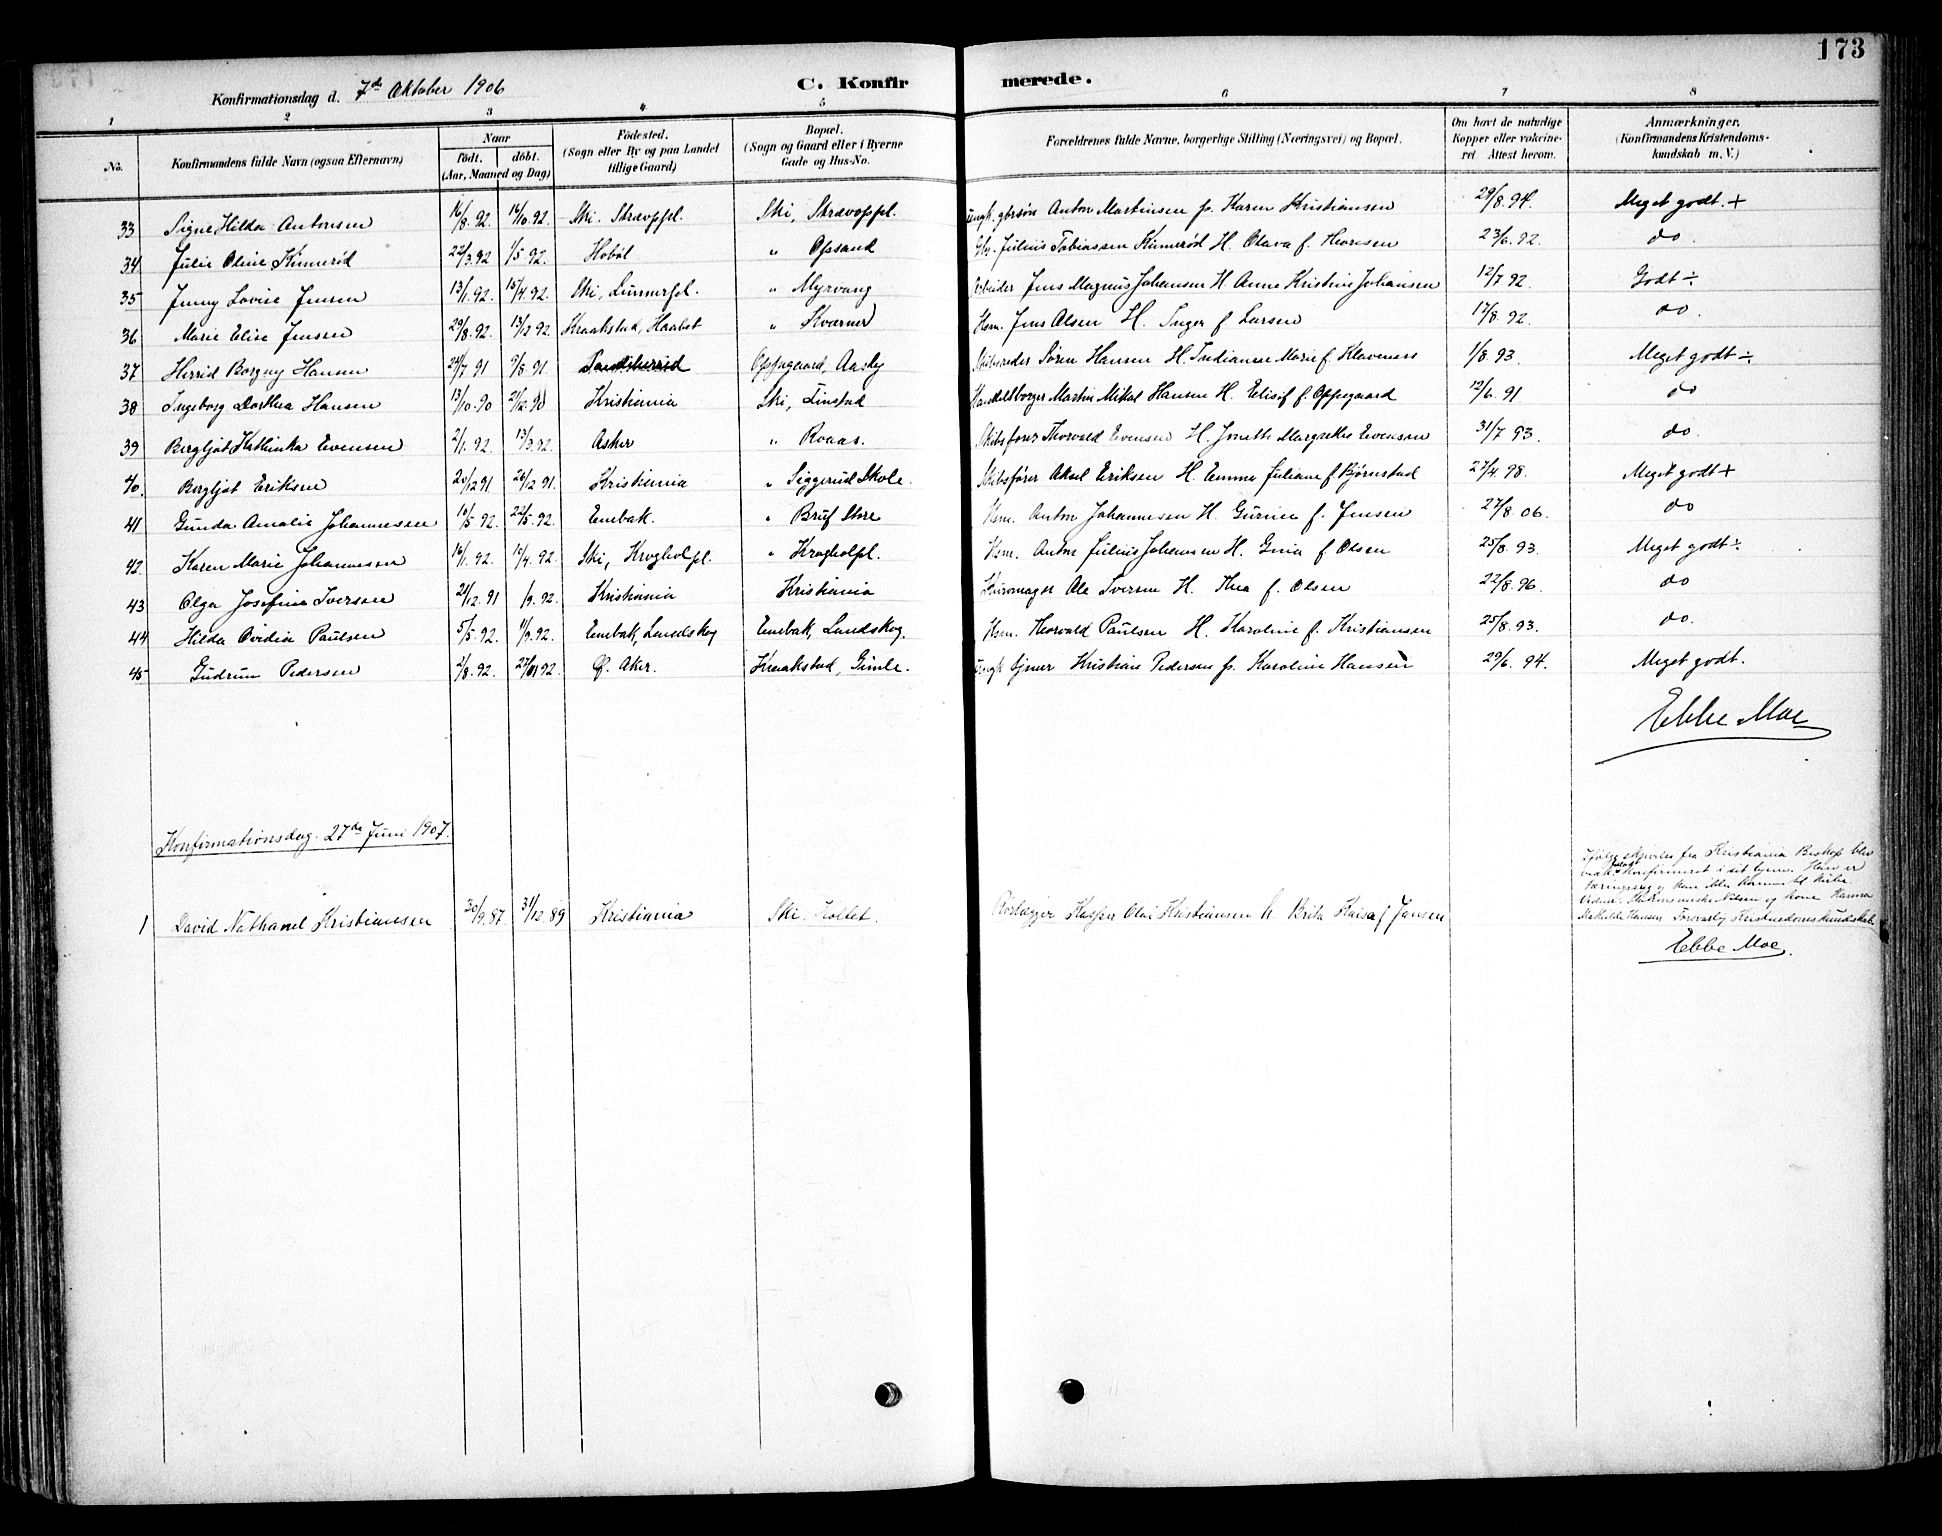 173
Konfirmationsdag d. 7de Oktober 1906 C. Konfirmerede.
1 2 3 4 5 6 7 8
No. Konfirmandens fulde Navn (ogsaa Efternavn) Naar født. døbt. (Aar, Maaned og Dag) Fødested. (Sogn eller By og paa Landet tillige Gaard) Bopæl. (Sogn og Gaard eller i Byerne Gade og Hus-No. Forældrenes fulde Navne, borgerlige Stilling (Næringsvei) og Bopæl. Om havt de naturlige Kopper eller vakcineret. Attest herom. Anmærkninger. (Konfirmandens Kristendomskundskab m. V.)
33 Signe Hilda Antonsen 16/8.92. 16/10.92. Ski. Skravfpl. Ski, Skravofpl. Anton Martinsen p. Karen Kristiansen 29/8.94. Meget godt. +
34 Julie Oline Kinnerød 22/3.92 1/5.92. Hobøl " Opsand Julius Tobiassen Kinnerød H. Olava f. Thoresen 23/6.92. do
35 Jenny Lovise Jensen 13/1.92. 15/4.92. Ski, " Myrvang Arbeider Jens Magnus Johansen H. Anne Kristine Johansen 12/7 92. Godt ÷
36 Marie Elise Jensen 29/8.92. 13/12 92 Kraakstad, Haabet " Kværner Hsm. Jens Olsen H. Inger f Larsen 17/8.92. do.
37 Herrid Borgny Hansen 24/7 91 9/8 91. Oppegaard, Aasly Skibsreder Søren Hansen H. Indianne Marie f Klaveness 1/8.93. Meget godt ÷
38 Ingeborg Dorthea Hansen 13/10.90 21/12.90 Kristiania Ski, Finstad Handelsborger Martin Mikal Hansen H. Elisif f. Oppegaard 12/6.91 do
39 Bergljot Kathinka Evensen 2/1.92. 13/3.92. Asker " Roaas. Skibsfører Thorvald Evensen H. Margrethe Evensen 31/7 93. do.
40. Bergljot Eriksen 20/12 91 26/12 91. Kristiania " Siggerud Skole. Skibsfører Aksel Eriksen H. Emma Juliane f Bjørnstad 27/4.98. Meget godt +
41 Gunda Amalie Johannessen 10/5.92. 22/5.92. Enebak. " Bru Hsm. Anton Johannesen H. Gurine f. Jensen 27/8.06. do
42. Karen Marie Johannessen 16/1.92. 10/4.92 Ski, Krogholpl. " Krogholpl. Hsm. Anton Julius Johansen H. Gina f Olsen 25/8.93. Meget godt ÷
43 Olga Josefine Iversen 21/12.91 1/9.92. Kristiania Kristiania Skomager Ole Iversen H. Thea f. Olsen 22/8.96. do
44 Hilda Ovidia Paulsen 5/5.92. 11/9.92. Enebak, Landskog Enebak, Landskog. Hsm. Thorvald Paulsen H. Karoline f. Kristiansen 25/8.93. do.
45 Gudrun Pedersen 2/8.92. 27/11 92 Ø. Aker. Kraakstad, Gimle. Ungk. tjener Kristian Pedersen p. Karoline Hansen 29/6.94. Meget godt.
Ebbe Moe
Konfirmationsdag. 27de Juni 1907.
1 David Nathanel Kristiansen 30/9.87 31/12.89 Kristiania Ski. Holtet. Kasper Olai Kristiansen h. Brita Kaisa f Jansen
Ifølge skrivelse fra Kristiania Biskop blev
konfirmeret i sit hjem. Han er
og kan ikke komme til kirke.
Nilsen og kone Hanna
Mathilde Hansen Kristendomskundskab.
Ebbe Moe.